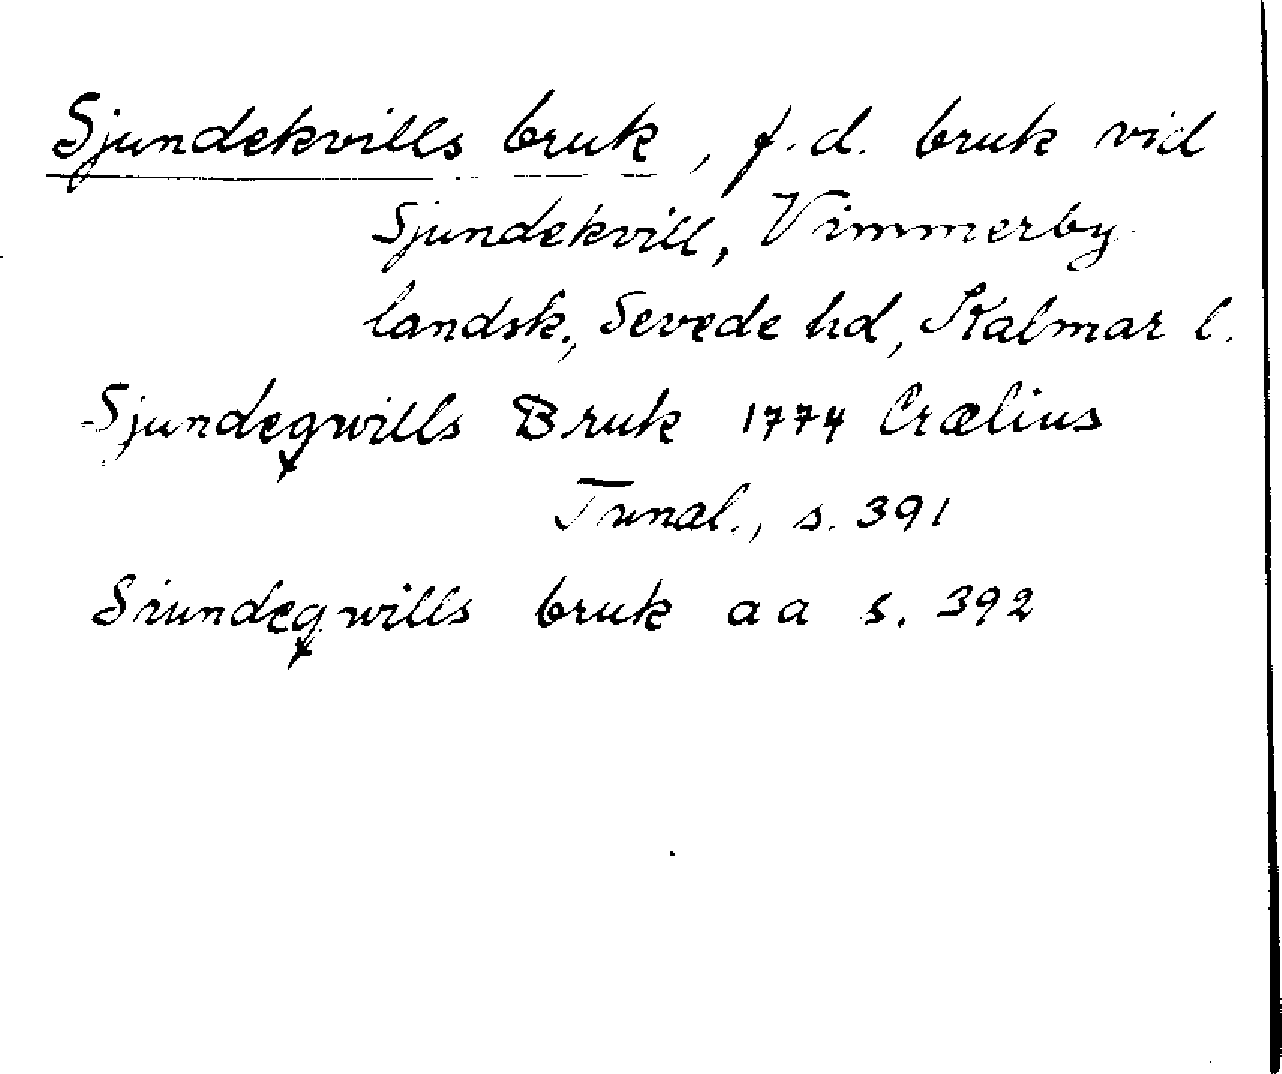 Sjundekvills bruk, f.d. bruk vid
Sjundekvill, Vimmerby
landsk., Sevede hd, Kalmar l.
Sjundeqwills Bruk 1774 Crælius
Tunal., s. 391
Siundeqwills bruk aa s. 392